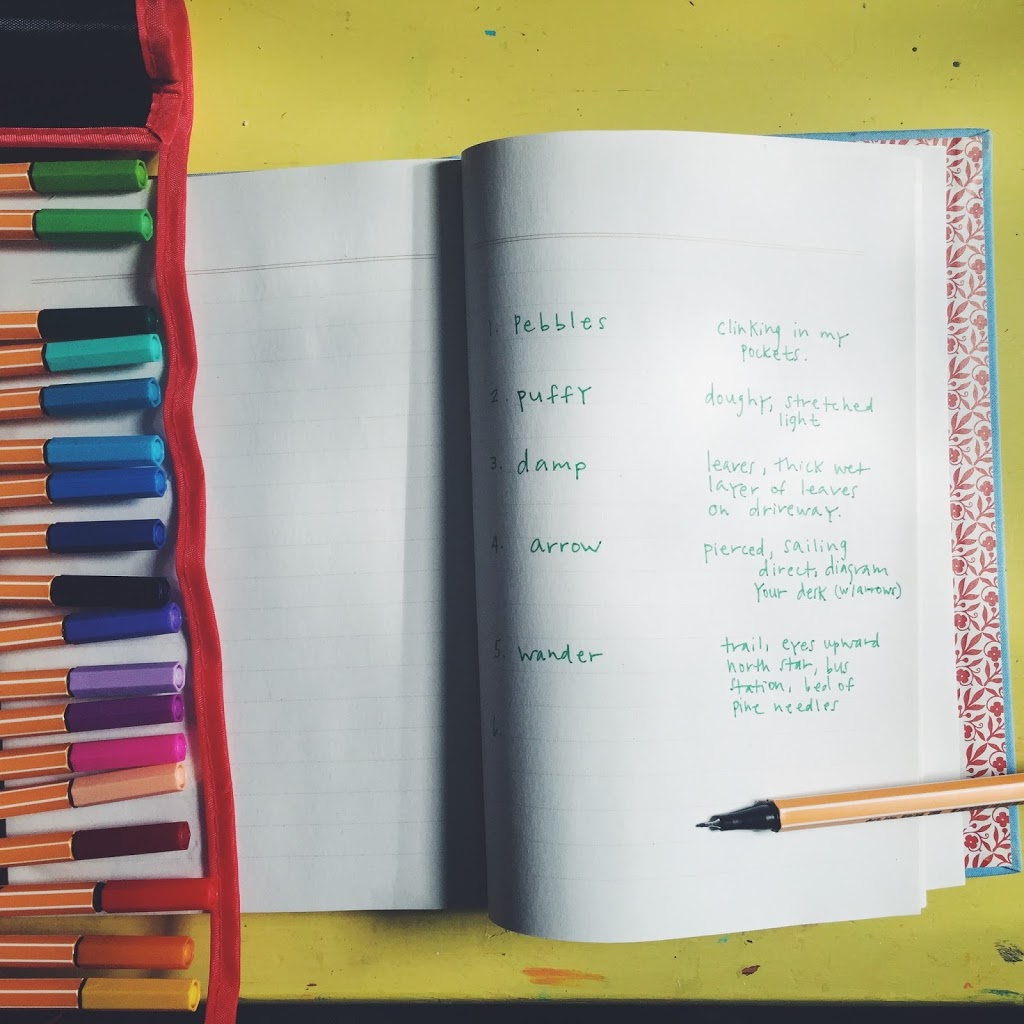 1. Pebbles
clinking in my
pockets.
2. puffy
doughy, stretched
light
3. damp
leaves, thick wet
layer of leaves
on driveway.
4. arrow
pierced, sailing
direct, diagram
your desk (w/arrows)
5. wander
trail, eyes upward
north star, bus
station, bed of
pine needles
6.